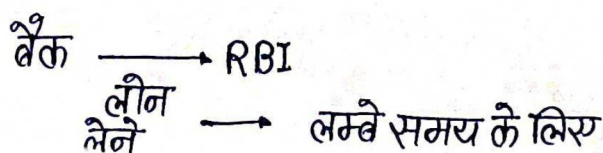 बैंक → RBI
लोन
लेने → लम्बे समय के लिए